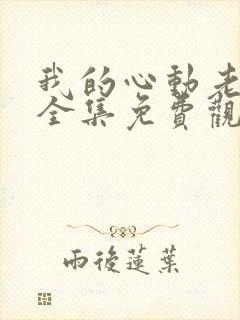 我的心動老
全集免費觀
雨後蓮葉